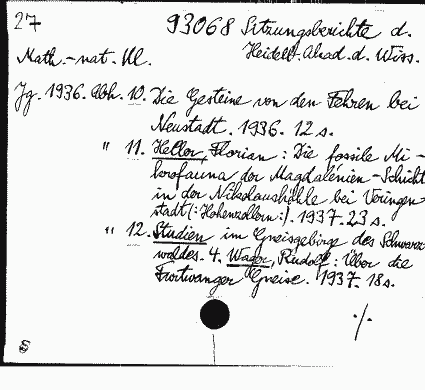 27
93068 Sitzungsberichte d.
Heidelb. Akad. d. Wiss.
Math.-nat. Kl.
Jg. 1936. Abh. 10. Die Gesteine von den Fehren bei
Neustadt. 1936. 12 s.
" 11. Heller, Florian: Die fossile Mi-
krofauna der Magdalénien-Schicht
in der Nikolaushöhle bei Veringen-
stadt (: Hohenzollern :). 1937. 23 s.
" 12. Studien im Gneisgebirge des Schwarz-
waldes. 4. Wager, Rudolf: Über die
Furtwanger Gneise. 1937. 18 s.
./.